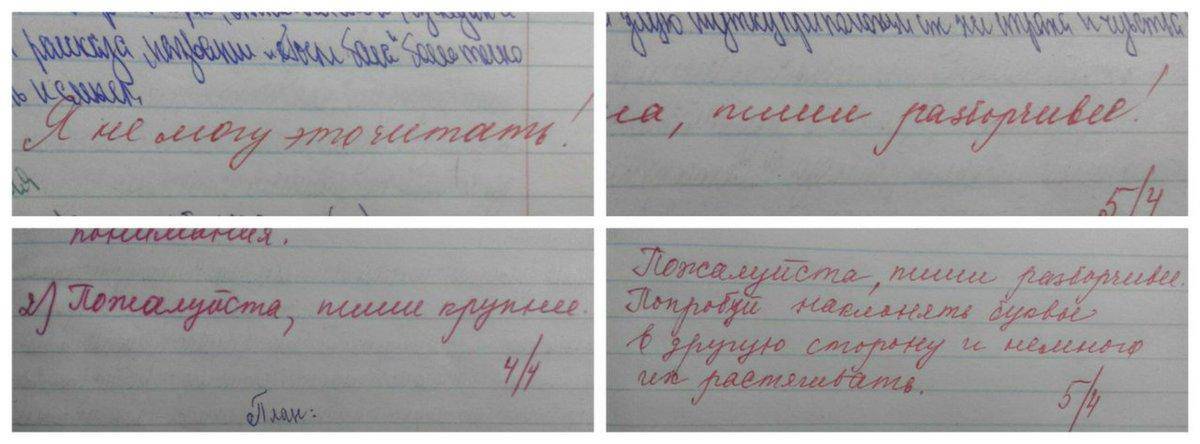 рассказа, название
Я не могу это читать!
ла, пиши разборчивее!
5/4
понимания.
2) Пожалуйста, пиши крупнее.
4/4
План:
Пожалуйста, пиши разборчивее.
Попробуй наклонять буквы
в другую сторону и немного
их растягивать.
5/4